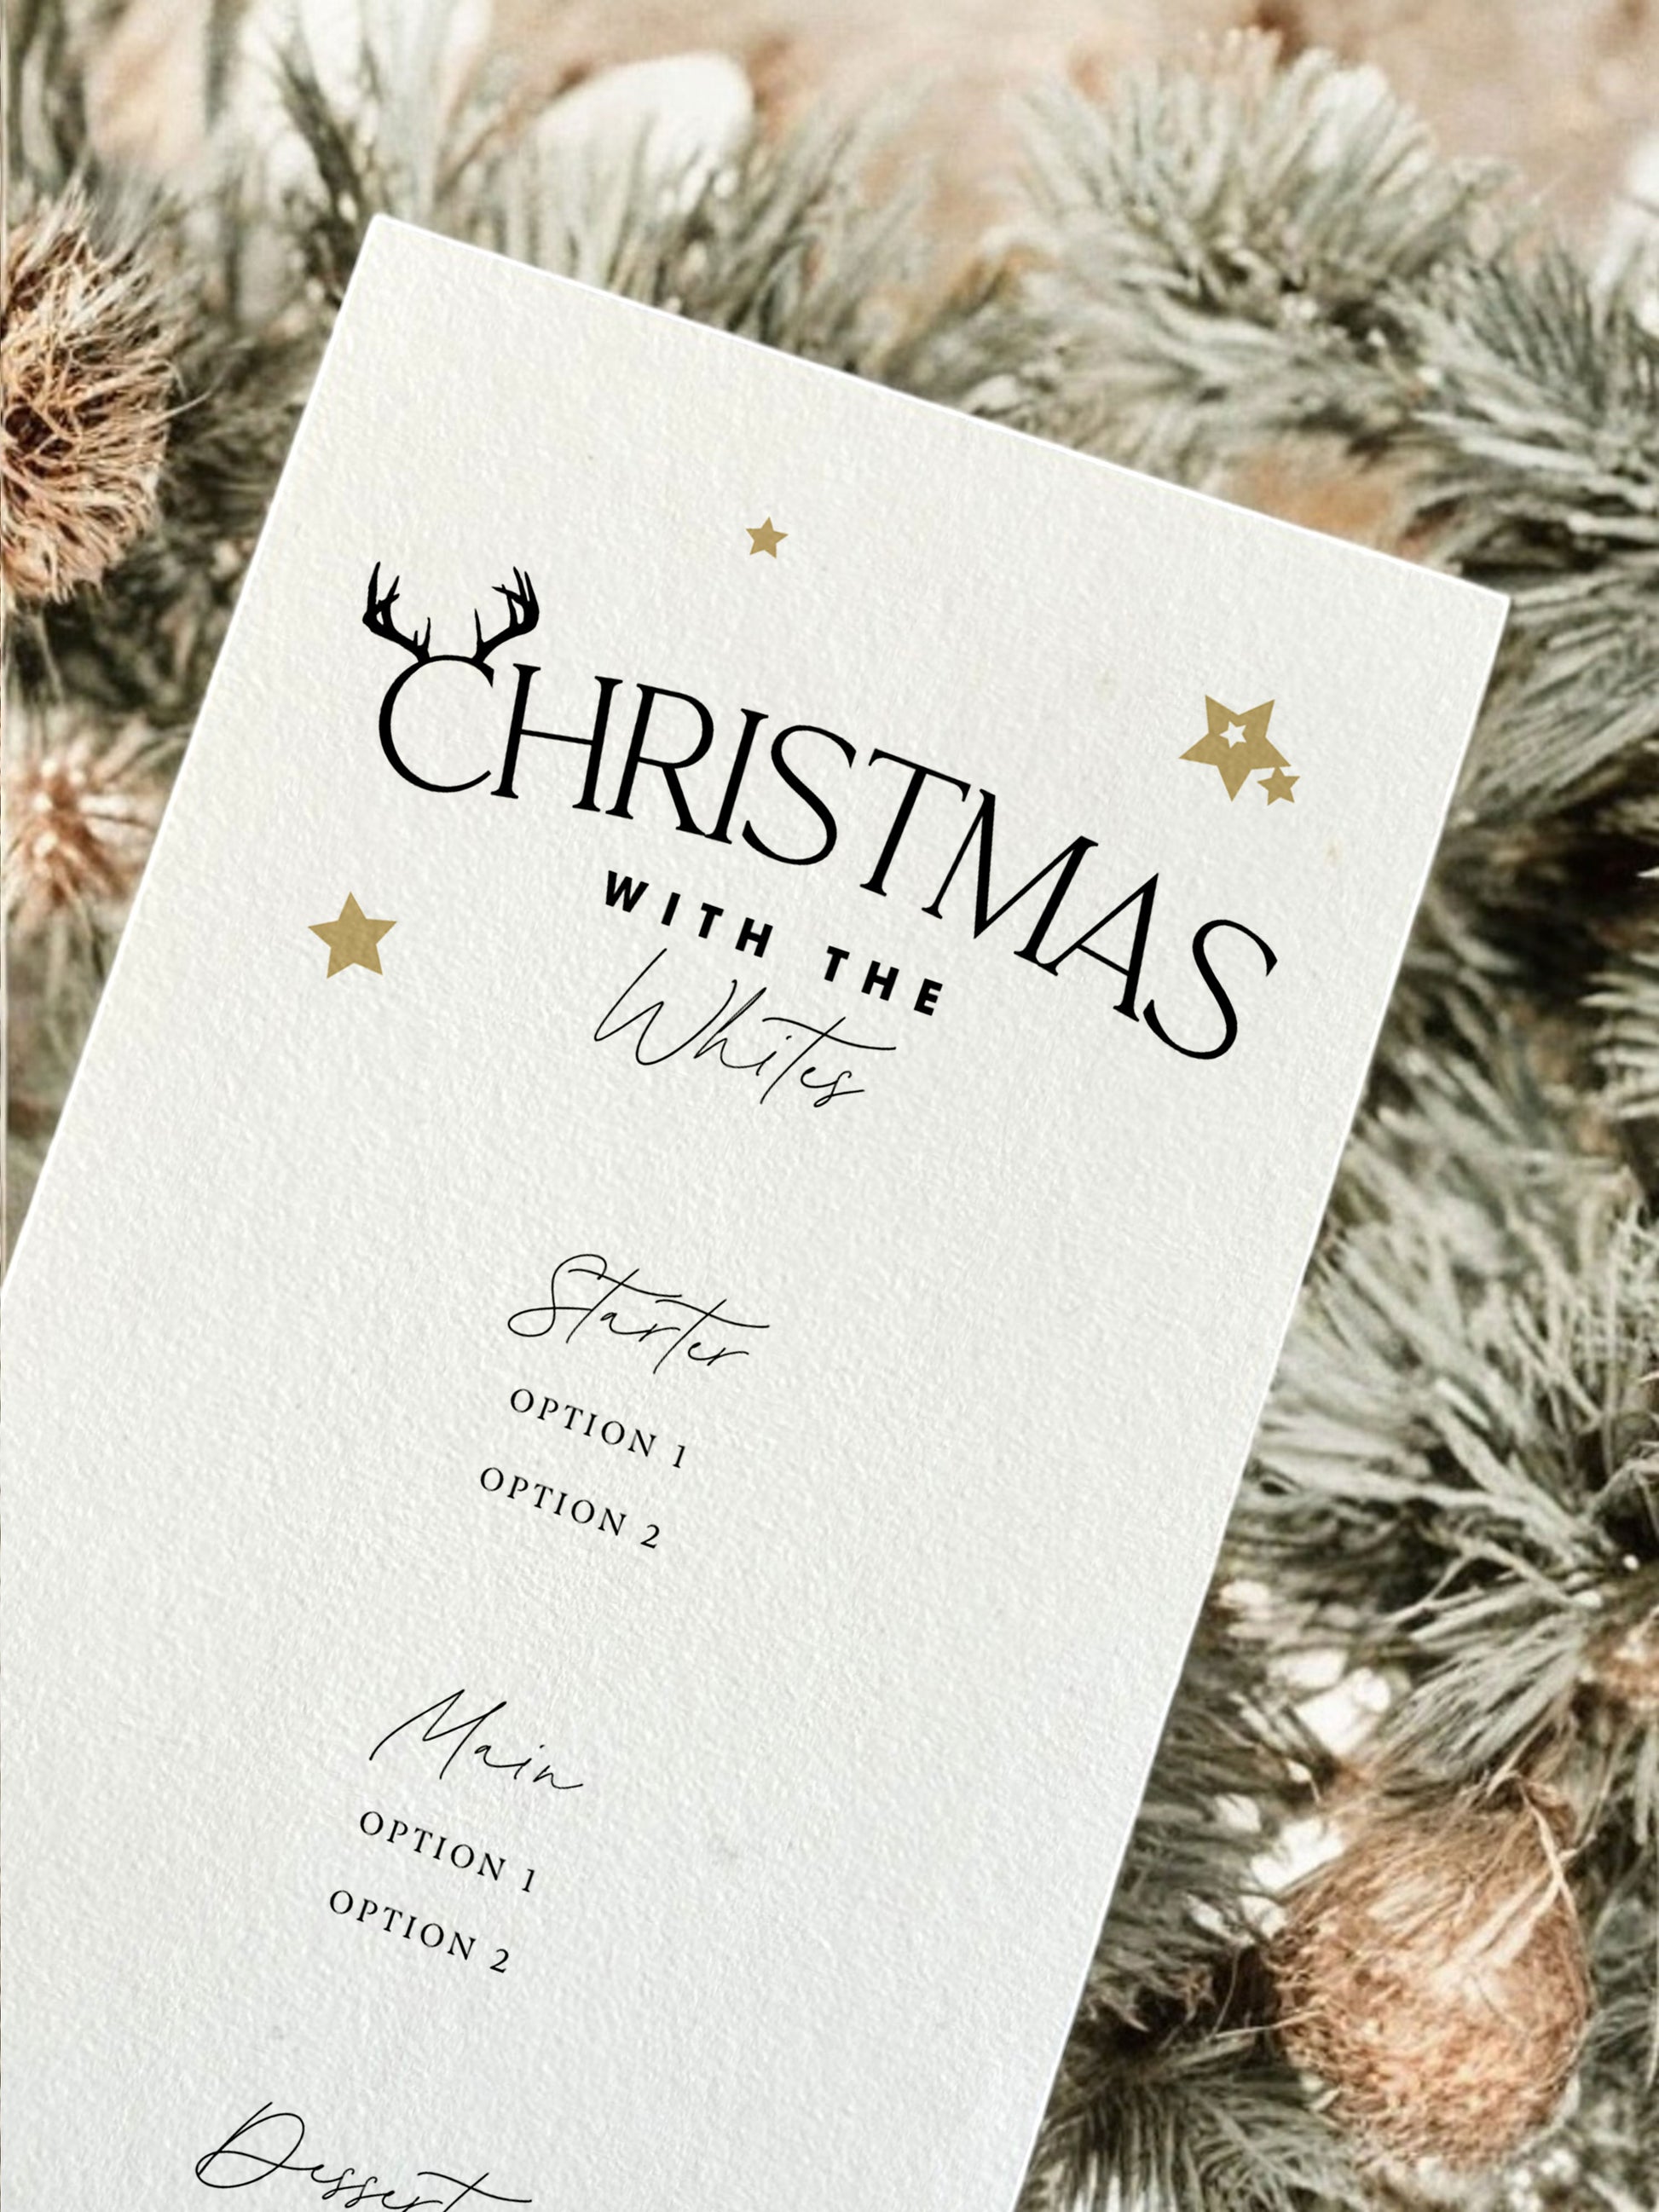 CHRISTMAS
WITH THE
Whites
Starter
OPTION 1
OPTION 2
Main
OPTION 1
OPTION 2
Dessert